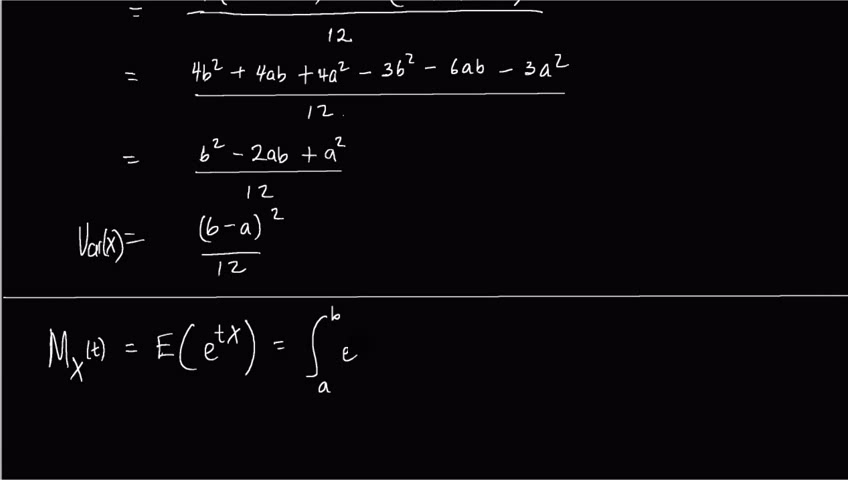 =
12
= 4b² + 4ab + 4a² - 3b² - 6ab - 3a²
12
= b² - 2ab + a²
12
Var(X) = (b-a)²
12
M_X(t) = E(e^{tX}) = ∫_a^b e